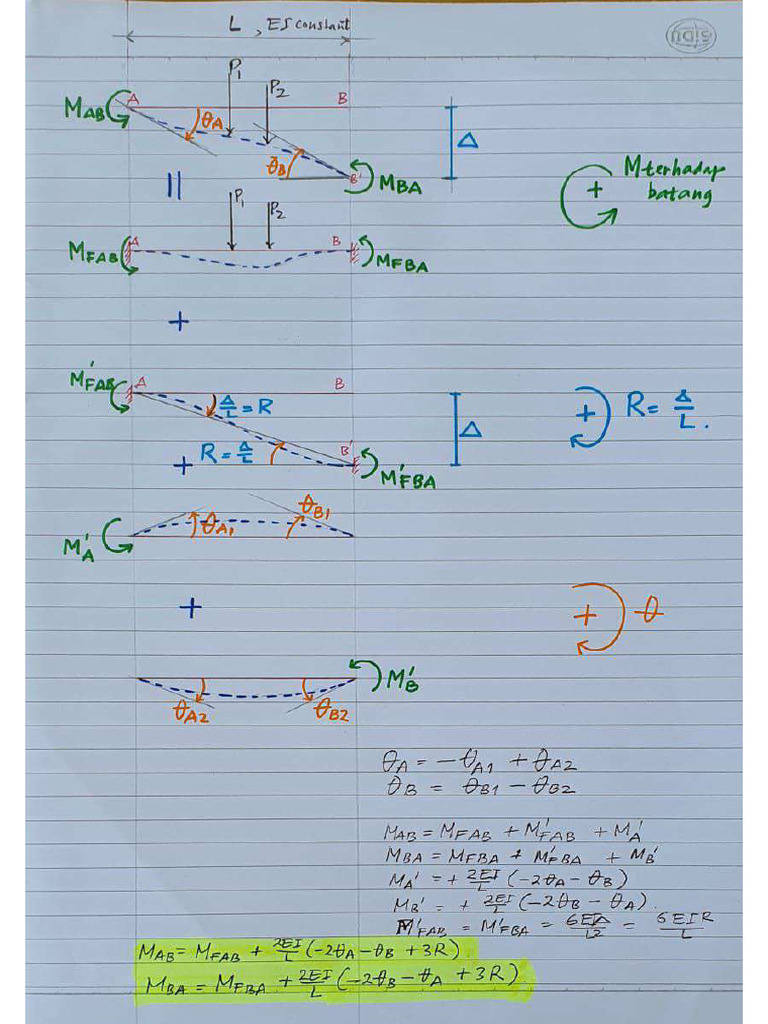 L, EI constant
nais
P1
P2
MAB
A
θA
B
Δ
θB
B'
MBA
M terhadap
batang
+
||
P1
P2
MFAB
A
B
MFBA
+
M'FAB
A
B
Δ/L = R
R = Δ/L
B'
Δ
M'FBA
+ R = Δ/L.
+
θA1
θB1
M'A
+
+ θ
M'B
θA2
θB2
θA = -θA1 + θA2
θB = θB1 - θB2
MAB = MFAB + M'FAB + MA'
MBA = MFBA + M'FBA + MB'
MA' = + 2EI/L (-2θA - θB)
MB' = + 2EI/L (-2θB - θA).
M'FAB = M'FBA = 6EIΔ/L2 = 6EIR/L
MAB = MFAB + 2EI/L (-2θA - θB + 3R)
MBA = MFBA + 2EI/L (-2θB - θA + 3R)